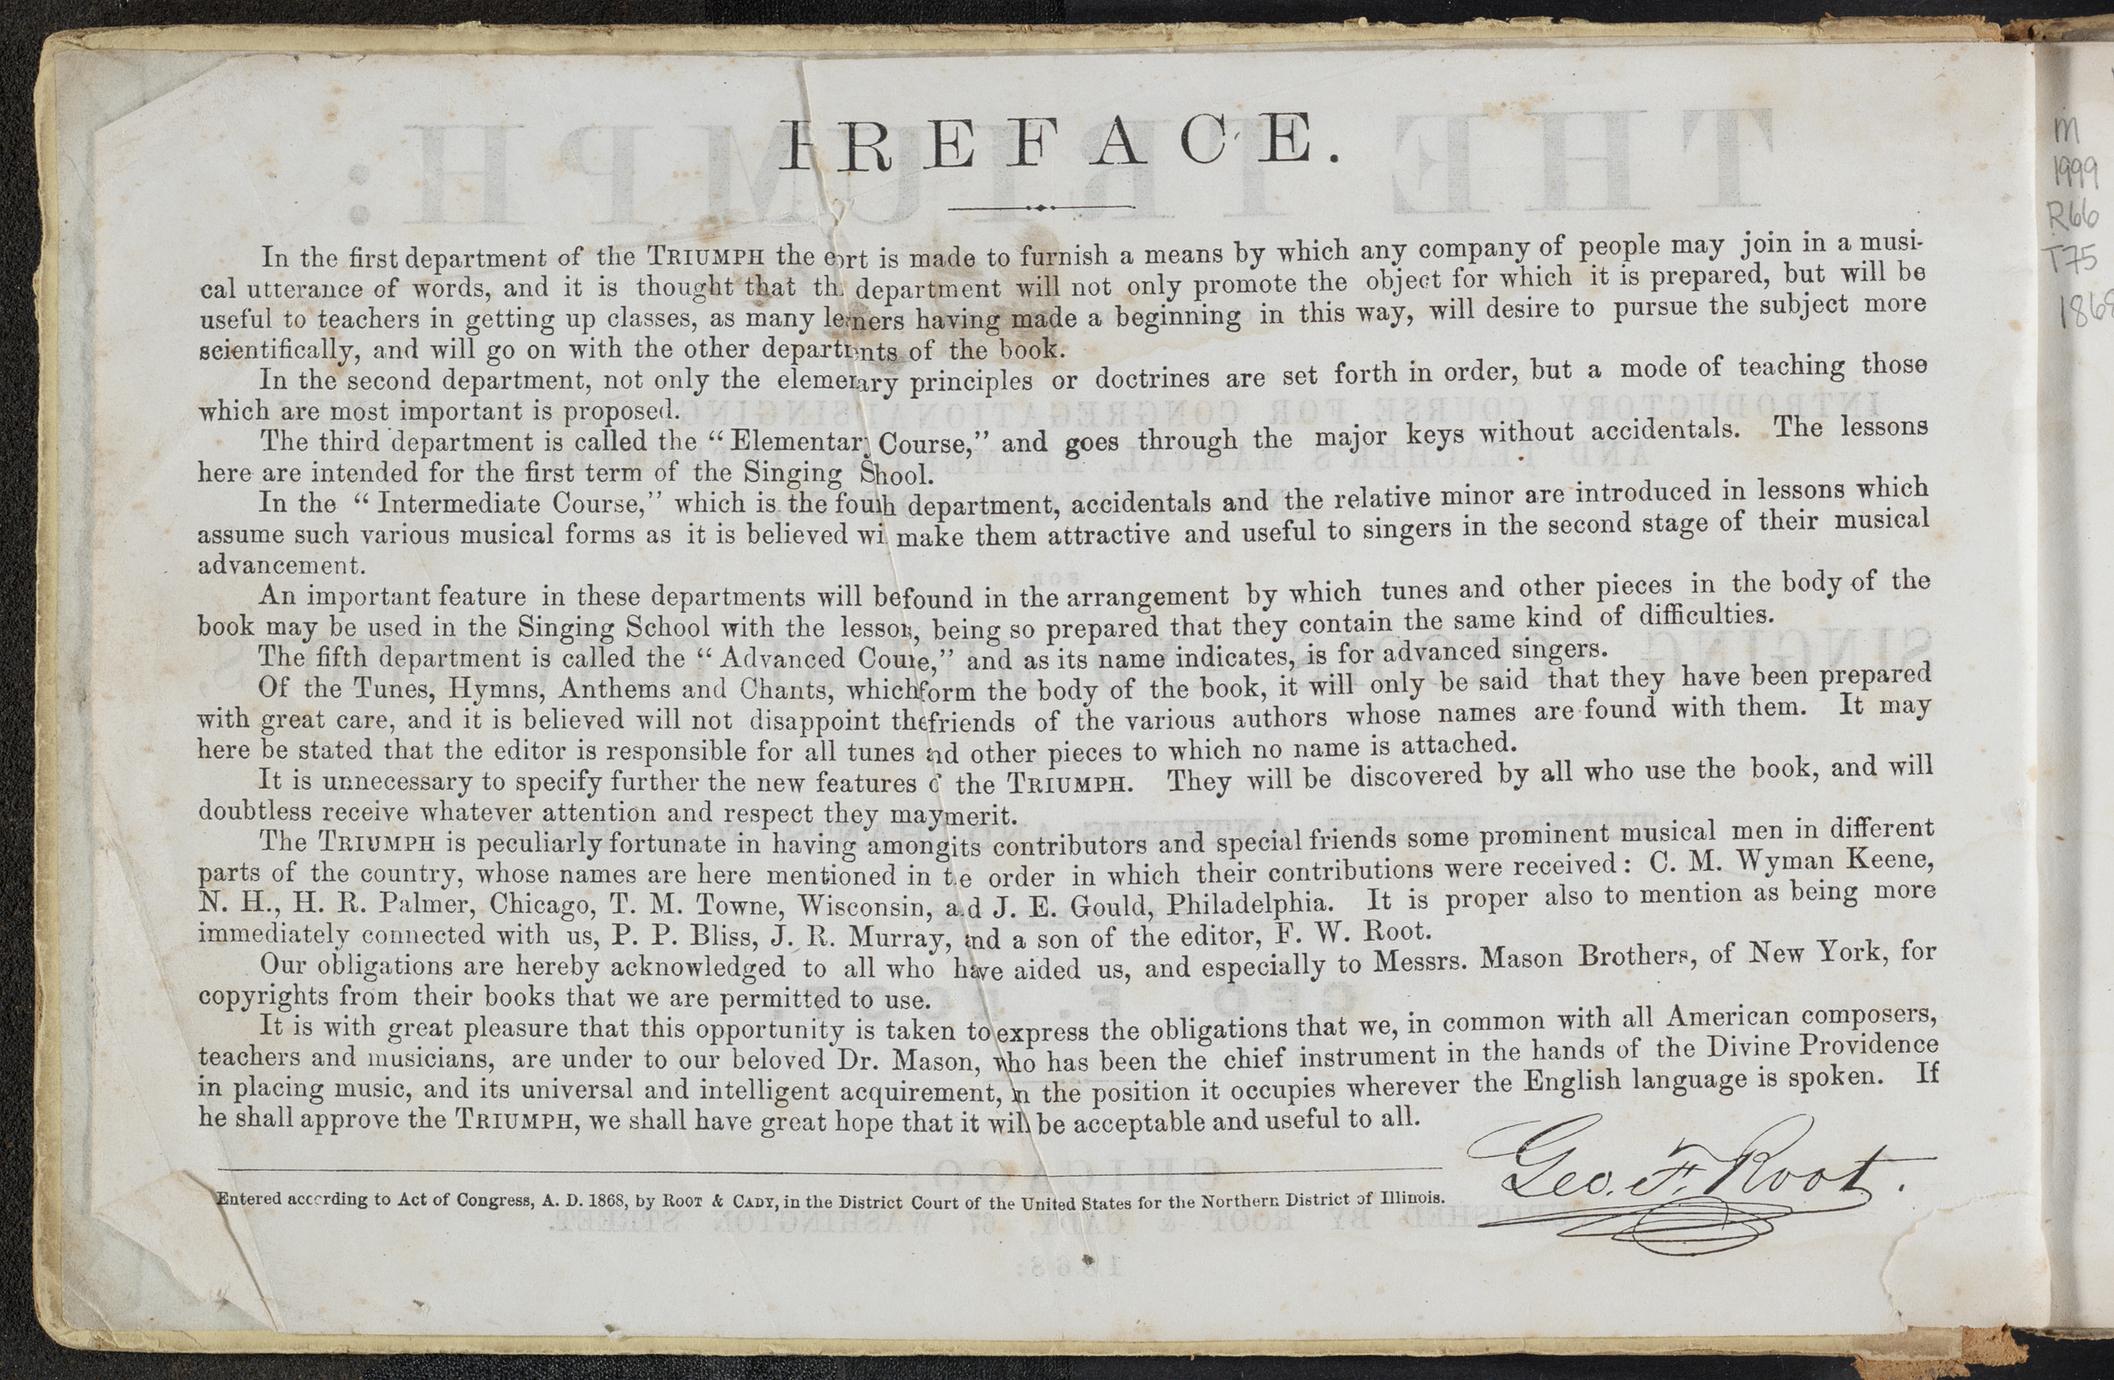 PREFACE.
In the first department of the TRIUMPH the effort is made to furnish a means by which any company of people may join in a musi-
cal utterance of words, and it is thought that this department will not only promote the object for which it is prepared, but will be
useful to teachers in getting up classes, as many learners having made a beginning in this way, will desire to pursue the subject more
scientifically, and will go on with the other departments of the book.
In the second department, not only the elementary principles or doctrines are set forth in order, but a mode of teaching those
which are most important is proposed.
The third department is called the “Elementary Course,” and goes through the major keys without accidentals. The lessons
here are intended for the first term of the Singing School.
In the “Intermediate Course,” which is the fourth department, accidentals and the relative minor are introduced in lessons which
assume such various musical forms as it is believed will make them attractive and useful to singers in the second stage of their musical
advancement.
An important feature in these departments will be found in the arrangement by which tunes and other pieces in the body of the
book may be used in the Singing School with the lessons, being so prepared that they contain the same kind of difficulties.
The fifth department is called the “Advanced Course,” and as its name indicates, is for advanced singers.
Of the Tunes, Hymns, Anthems and Chants, which form the body of the book, it will only be said that they have been prepared
with great care, and it is believed will not disappoint the friends of the various authors whose names are found with them. It may
here be stated that the editor is responsible for all tunes and other pieces to which no name is attached.
It is unnecessary to specify further the new features of the TRIUMPH. They will be discovered by all who use the book, and will
doubtless receive whatever attention and respect they may merit.
The TRIUMPH is peculiarly fortunate in having among its contributors and special friends some prominent musical men in different
parts of the country, whose names are here mentioned in the order in which their contributions were received: C. M. Wyman Keene,
N. H., H. R. Palmer, Chicago, T. M. Towne, Wisconsin, and J. E. Gould, Philadelphia. It is proper also to mention as being more
immediately connected with us, P. P. Bliss, J. R. Murray, and a son of the editor, F. W. Root.
Our obligations are hereby acknowledged to all who have aided us, and especially to Messrs. Mason Brothers, of New York, for
copyrights from their books that we are permitted to use.
It is with great pleasure that this opportunity is taken to express the obligations that we, in common with all American composers,
teachers and musicians, are under to our beloved Dr. Mason, who has been the chief instrument in the hands of the Divine Providence
in placing music, and its universal and intelligent acquirement, in the position it occupies wherever the English language is spoken. If
he shall approve the TRIUMPH, we shall have great hope that it will be acceptable and useful to all.
Geo. F. Root.
Entered according to Act of Congress, A. D. 1868, by ROOT & CADY, in the District Court of the United States for the Northern District of Illinois.
M
1999
R66
T75
1868